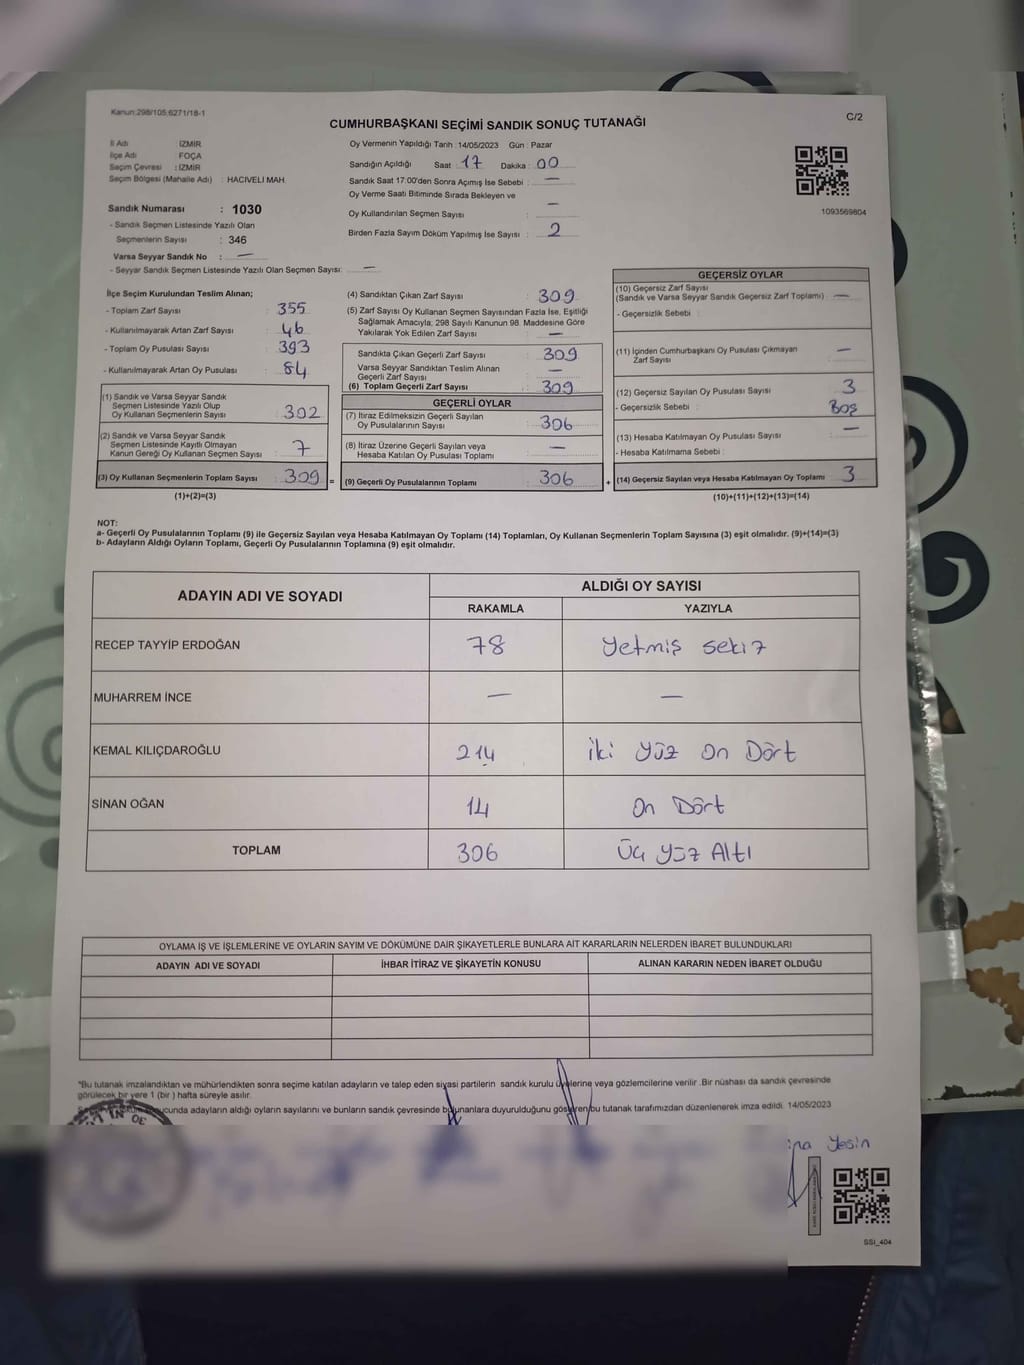 Kanun:298/105;6271/18-1
C/2
CUMHURBAŞKANI SEÇİMİ SANDIK SONUÇ TUTANAĞI
İl Adı : İZMİR
İlçe Adı : FOÇA
Seçim Çevresi : İZMİR
Seçim Bölgesi (Mahalle Adı) : HACIVELİ MAH.
Sandık Numarası : 1030
- Sandık Seçmen Listesinde Yazılı Olan
Seçmenlerin Sayısı : 346
Varsa Seyyar Sandık No : —
- Seyyar Sandık Seçmen Listesinde Yazılı Olan Seçmen Sayısı: —
Oy Vermenin Yapıldığı Tarih : 14/05/2023 Gün : Pazar
Sandığın Açıldığı Saat : 17 Dakika : 00
Sandık Saat 17:00'den Sonra Açımış İse Sebebi : —
Oy Verme Saati Bitiminde Sırada Bekleyen ve
Oy Kullandırılan Seçmen Sayısı : —
Birden Fazla Sayım Döküm Yapılmış İse Sayısı : 2
1093569804
İlçe Seçim Kurulundan Teslim Alınan;
- Toplam Zarf Sayısı : 355
- Kullanılmayarak Artan Zarf Sayısı : 46
- Toplam Oy Pusulası Sayısı : 393
- Kullanılmayarak Artan Oy Pusulası : 84
(1) Sandık ve Varsa Seyyar Sandık
Seçmen Listesinde Yazılı Olup
Oy Kullanan Seçmenlerin Sayısı : 302
(2) Sandık ve Varsa Seyyar Sandık
Seçmen Listesinde Kayıtlı Olmayan
Kanun Gereği Oy Kullanan Seçmen Sayısı : 7
(3) Oy Kullanan Seçmenlerin Toplam Sayısı : 309 =
(1)+(2)=(3)
(4) Sandıktan Çıkan Zarf Sayısı : 309
(5) Zarf Sayısı Oy Kullanan Seçmen Sayısından Fazla İse, Eşitliği
Sağlamak Amacıyla; 298 Sayılı Kanunun 98. Maddesine Göre
Yakılarak Yok Edilen Zarf Sayısı : —
Sandıkta Çıkan Geçerli Zarf Sayısı : 309
Varsa Seyyar Sandıktan Teslim Alınan
Geçerli Zarf Sayısı : —
(6) Toplam Geçerli Zarf Sayısı : 309
GEÇERLİ OYLAR
(7) İtiraz Edilmeksizin Geçerli Sayılan
Oy Pusulalarının Sayısı : 306
(8) İtiraz Üzerine Geçerli Sayılan veya
Hesaba Katılan Oy Pusulası Toplamı : —
(9) Geçerli Oy Pusulalarının Toplamı : 306 +
GEÇERSİZ OYLAR
(10) Geçersiz Zarf Sayısı
(Sandık ve Varsa Seyyar Sandık Geçersiz Zarf Toplamı) : —
- Geçersizlik Sebebi :
(11) İçinden Cumhurbaşkanı Oy Pusulası Çıkmayan
Zarf Sayısı : —
(12) Geçersiz Sayılan Oy Pusulası Sayısı : 3
- Geçersizlik Sebebi : Boş
(13) Hesaba Katılmayan Oy Pusulası Sayısı : —
- Hesaba Katılmama Sebebi :
(14) Geçersiz Sayılan veya Hesaba Katılmayan Oy Toplamı : 3
(10)+(11)+(12)+(13)=(14)
NOT:
a- Geçerli Oy Pusulalarının Toplamı (9) ile Geçersiz Sayılan veya Hesaba Katılmayan Oy Toplamı (14) Toplamları, Oy Kullanan Seçmenlerin Toplam Sayısına (3) eşit olmalıdır. (9)+(14)=(3)
b- Adayların Aldığı Oyların Toplamı, Geçerli Oy Pusulalarının Toplamına (9) eşit olmalıdır.
ADAYIN ADI VE SOYADI
ALDIĞI OY SAYISI
RAKAMLA YAZIYLA
RECEP TAYYİP ERDOĞAN 78 Yetmiş sekiz
MUHARREM İNCE — —
KEMAL KILIÇDAROĞLU 214 İki yüz on Dört
SİNAN OĞAN 14 On Dört
TOPLAM 306 Üç yüz Altı
OYLAMA İŞ VE İŞLEMLERİNE VE OYLARIN SAYIM VE DÖKÜMÜNE DAİR ŞİKAYETLERLE BUNLARA AİT KARARLARIN NELERDEN İBARET BULUNDUKLARI
ADAYIN ADI VE SOYADI İHBAR İTİRAZ VE ŞİKAYETİN KONUSU ALINAN KARARIN NEDEN İBARET OLDUĞU
*Bu tutanak imzalandıktan ve mühürlendikten sonra seçime katılan adayların ve talep eden siyasi partilerin sandık kurulu üyelerine veya gözlemcilerine verilir .Bir nüshası da sandık çevresinde
görülecek bir yere 1 (bir ) hafta süreyle asılır.
adayların aldığı oyların sayılarını ve bunların sandık çevresinde bulunanlara duyurulduğunu gösteren bu tutanak tarafımızdan düzenlenerek imza edildi. 14/05/2023
Yesin
SSI_404